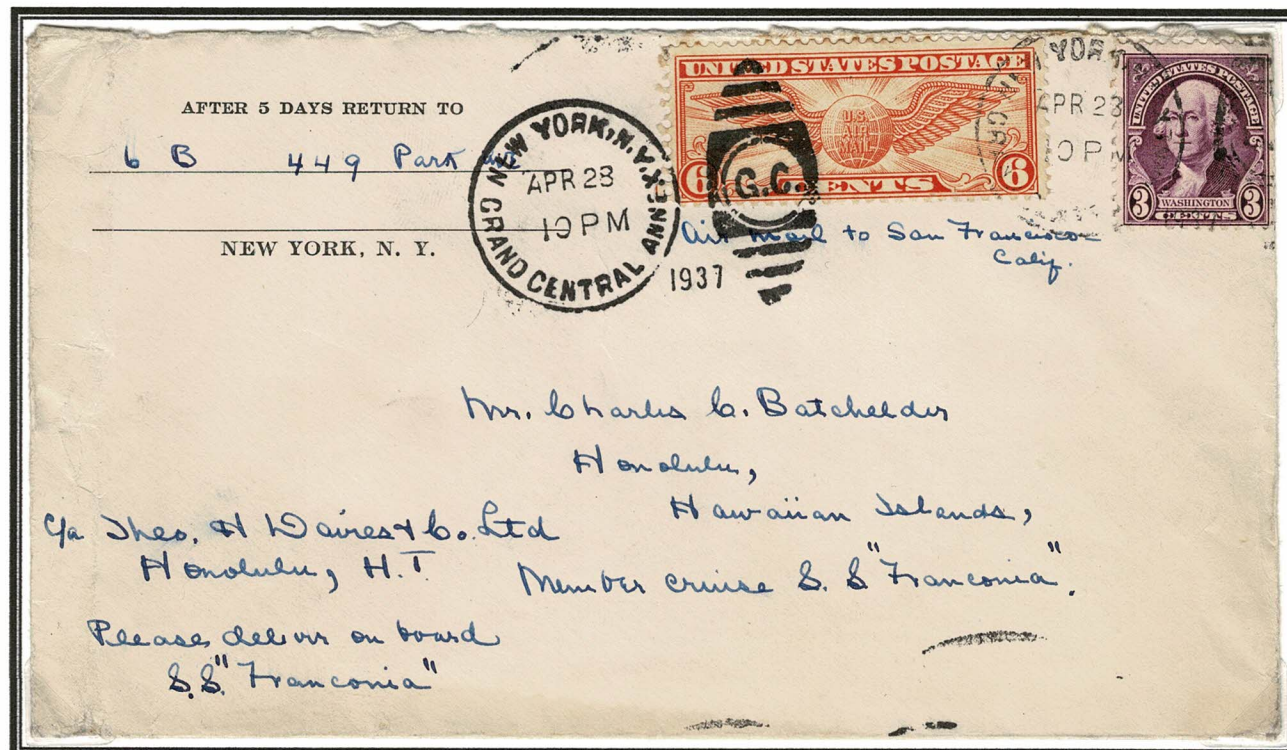 AFTER 5 DAYS RETURN TO
6 B 449 Park
NEW YORK, N. Y.
NEW YORK, N.Y.
GRAND CENTRAL ANNEX
APR 28
10 PM
1937
G.C.
UNITED STATES POSTAGE
U.S.
AIR
MAIL
6 CENTS 6
YORK
APR 28
10 PM
UNITED STATES POSTAGE
WASHINGTON
3 CENTS 3
Air Mail to San Francisco
Calif.
Mr. Charles C. Batchelder
Honolulu,
Hawaiian Islands,
Member cruise S. S. "Franconia".
c/o Theo. H Davies & Co. Ltd
Honolulu, H.T.
Please deliver on board
S.S. "Franconia"